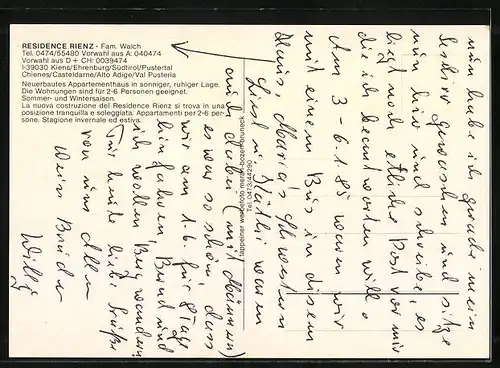 RESIDENCE RIENZ - Fam. Walch
Tel. 0474/55480 Vorwahl aus A: 040474
Vorwahl aus D + CH: 0039474
I-39030 Kiens/Ehrenburg/Südtirol/Pustertal
Chienes/Casteldarne/Alto Adige/Val Pusteria
Neuerbautes Appartementhaus in sonniger, ruhiger Lage.
Die Wohnungen sind für 2-6 Personen geeignet.
Sommer- und Wintersaison.
La nuova costruzione del Residence Rienz si trova in una
posizione tranquilla e soleggiata. Appartamenti per 2-6 per-
sone. Stagione invernale ed estiva.
Tappeiner werbefoto meran-bozen-bruneck
Tel. 0473/44290
nun habe ich gerade mein
gewaschen und sitze
nun hier und schreibe, es
liegt noch etliche Post vor mir
die ich beantworten will.
Am 3-6.1.85 waren wir
mit einem Bus in diesem
Haus, Maria's Schwestern
Liesl u. Käthi waren
auch dabei (mit Männern)
es war so schön, dass
wir am 1.6. für 9 Tage
hinfahren, Bernd und
ich wollen Berg wandern
Für heute liebe Grüße
von uns allen
Dein Bruder
Willy